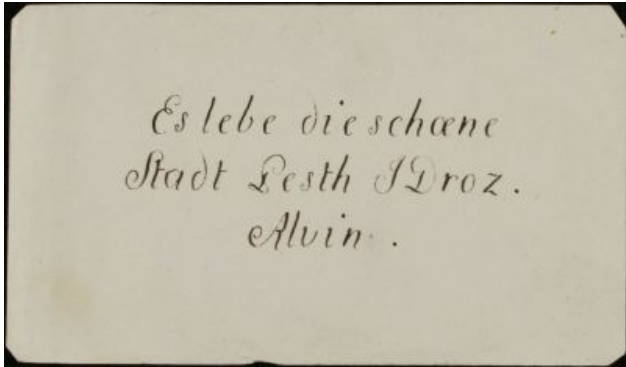 Es lebe die schœne
Stadt Pesth JDroz.
Alvin.